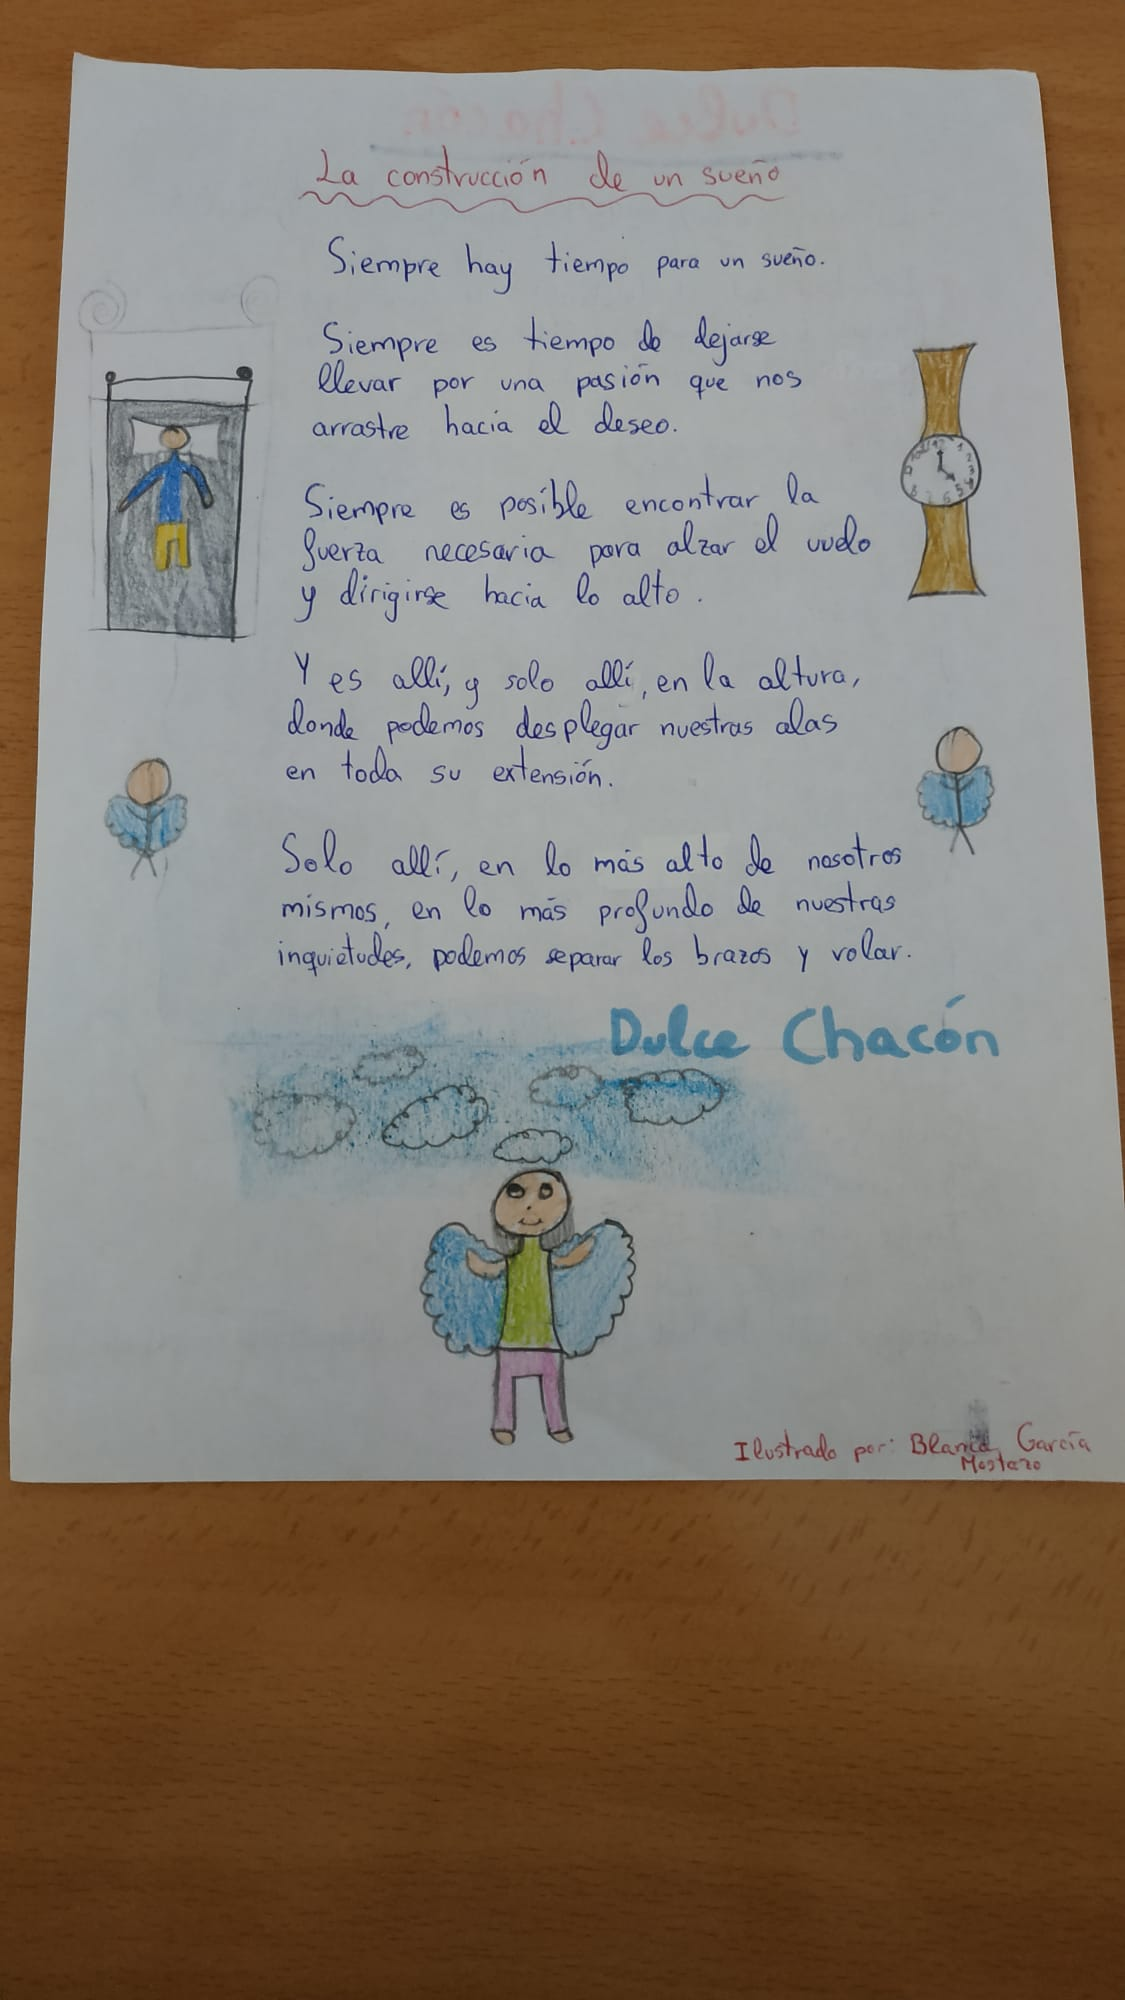 La construcción de un sueño
Siempre hay tiempo para un sueño.
Siempre es tiempo de dejarse
llevar por una pasión que nos
arrastre hacia el deseo.
Siempre es posible encontrar la
fuerza necesaria para alzar el vuelo
y dirigirse hacia lo alto.
Y es allí, y solo allí, en la altura,
donde podemos desplegar nuestras alas
en toda su extensión.
Solo allí, en lo más alto de nosotros
mismos, en lo más profundo de nuestras
inquietudes, podemos separar los brazos y volar.
Dulce Chacón
Ilustrado por: Blanca García
Mostazo